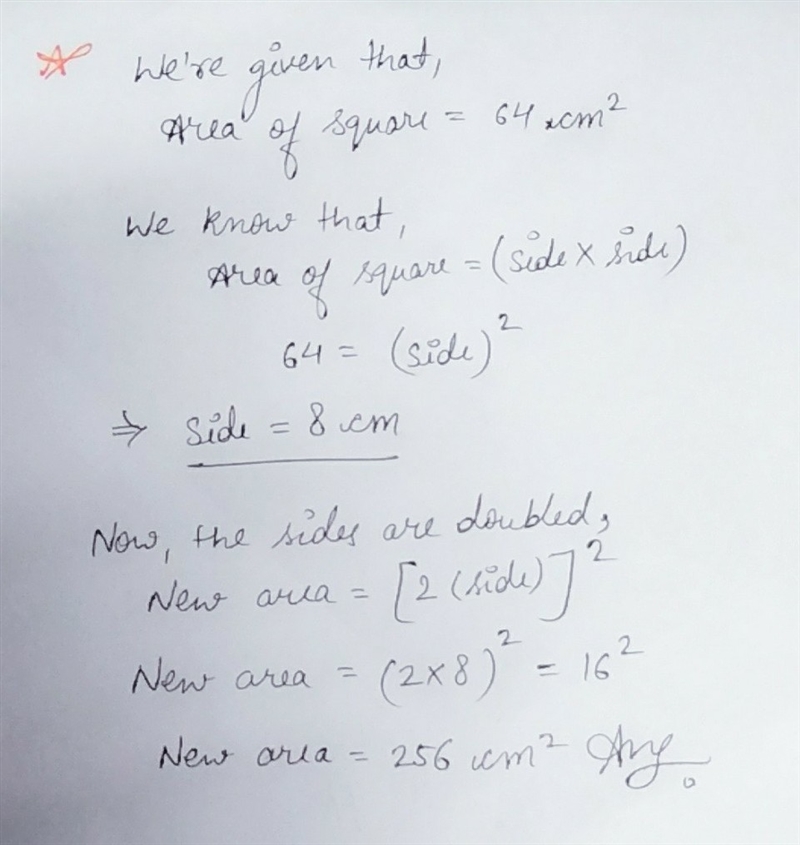 We're given that,
Area of square = 64 cm²
We know that,
Area of square = (side × side)
64 = (side)²
⇒ Side = 8 cm
Now, the sides are doubled,
New area = [2 (side)]²
New area = (2×8)² = 16²
New area = 256 cm² Ans.